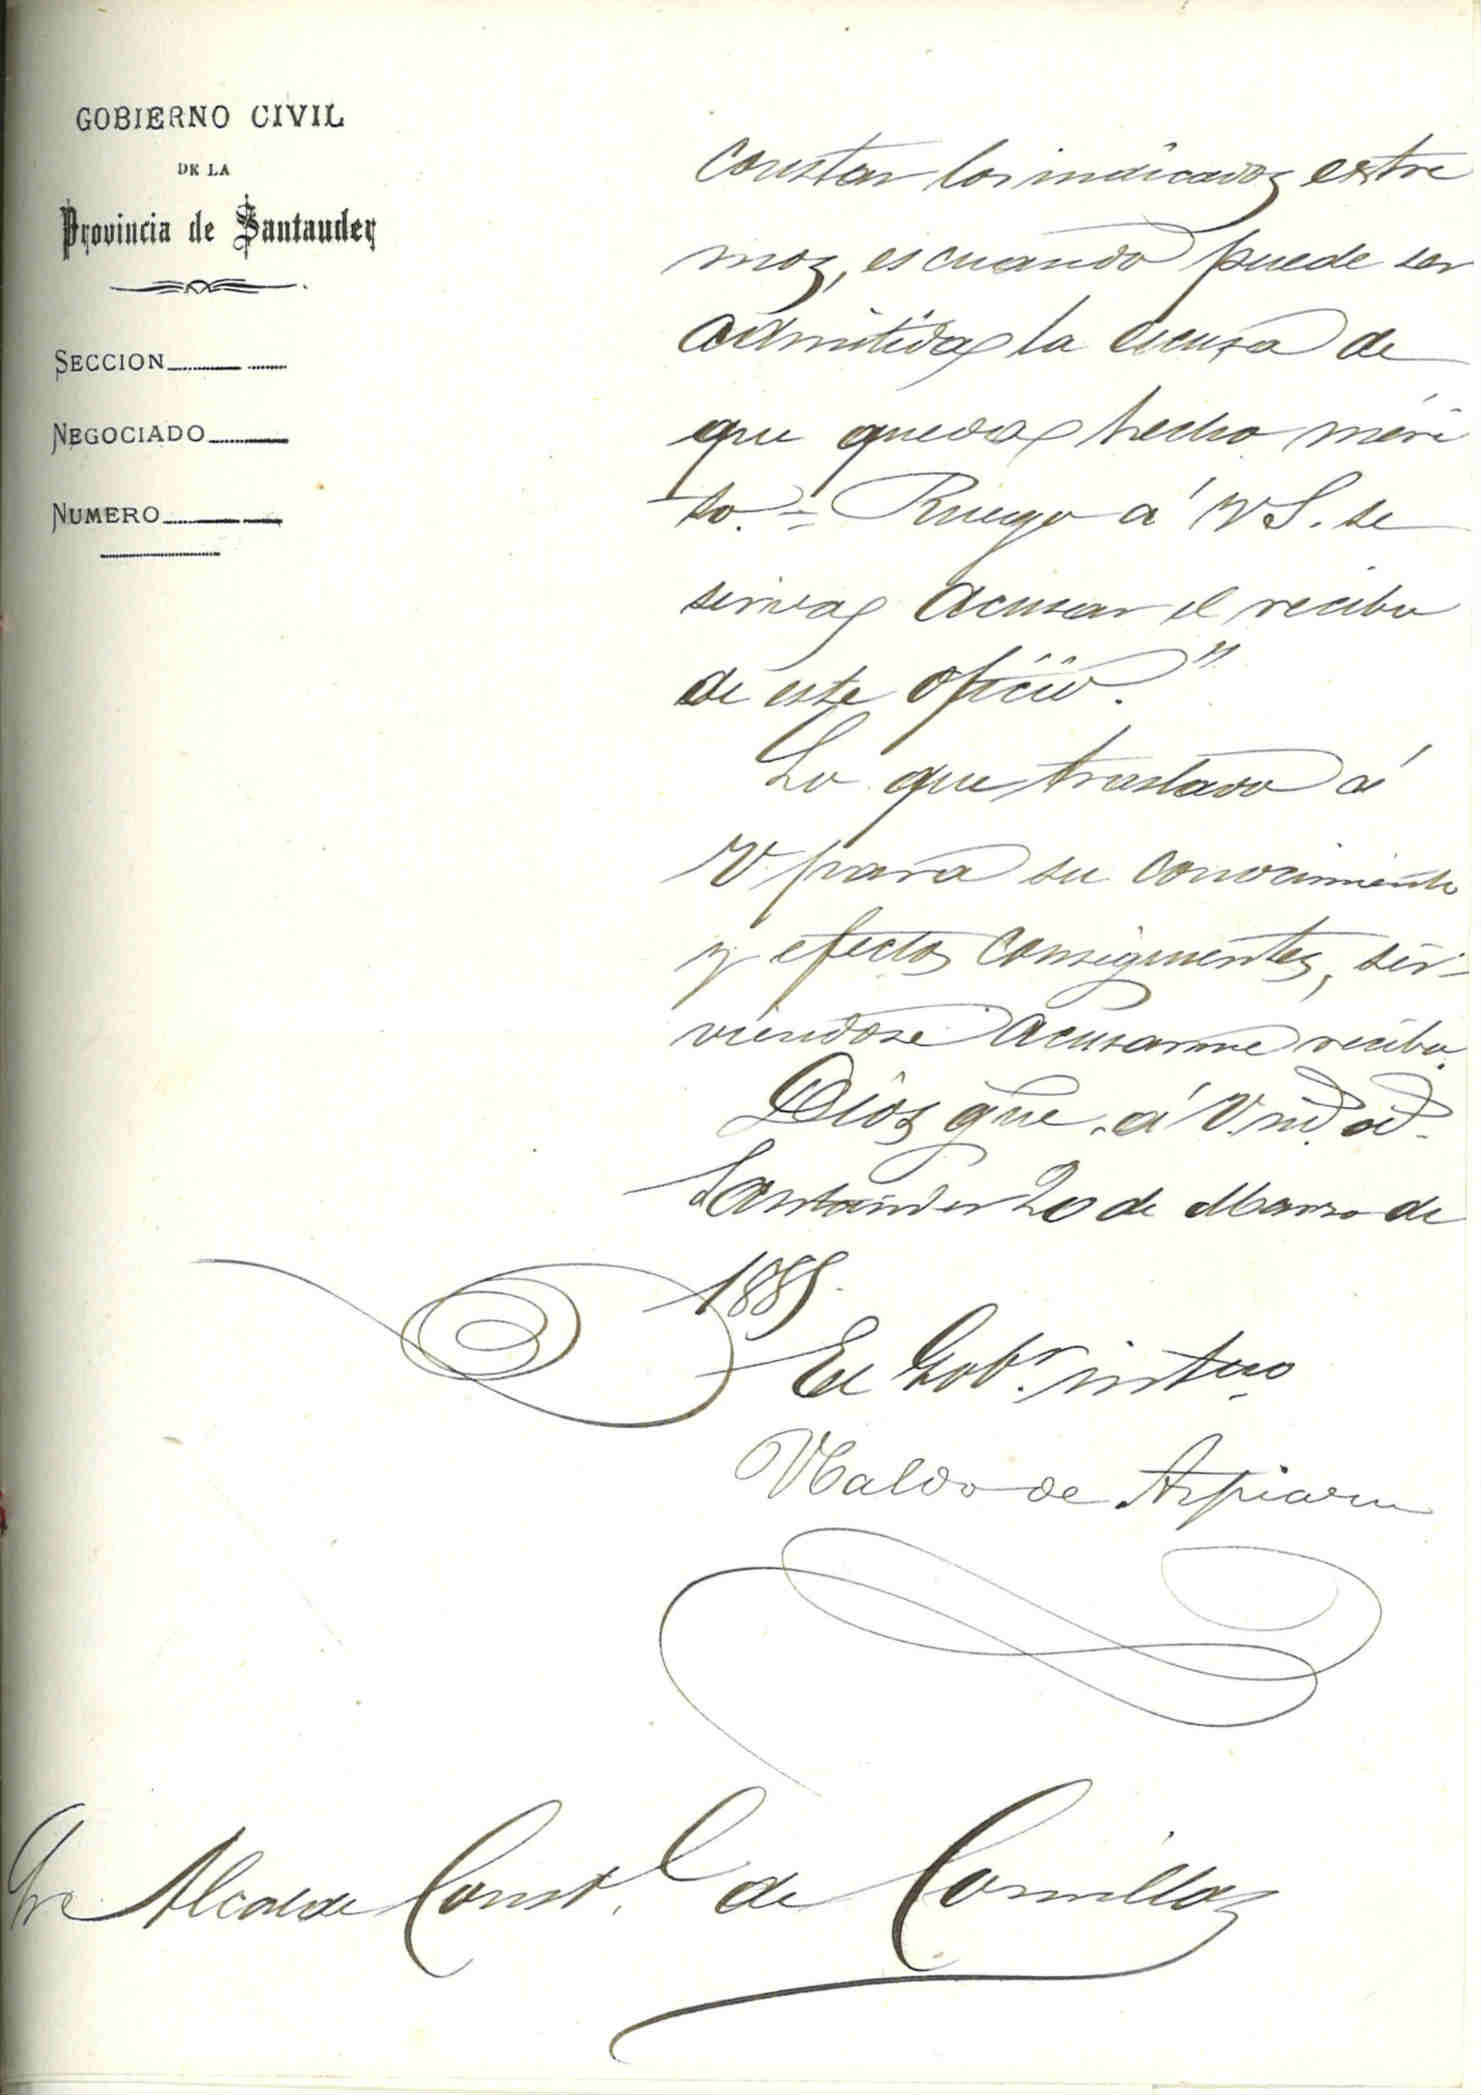 GOBIERNO CIVIL
DE LA
Provincia de Santander
SECCION
NEGOCIADO
NUMERO
constar los indicados extre
mos, es cuando puede ser
admitida la escusa de
que queda hecho méri
to. = Ruego á V S. se
sirva acusar el recibo
de este oficio."
Lo que traslado á
V para su conocimiento
y efectos consiguientes, sir-
viendose acusarme recibo.
Dios gue. á V. md. ad.
Santander 20 de Marzo de
1885.
El Gobr. intno
Ubaldo de Azpiazu
Sr Alcalde Constl. de Comillas